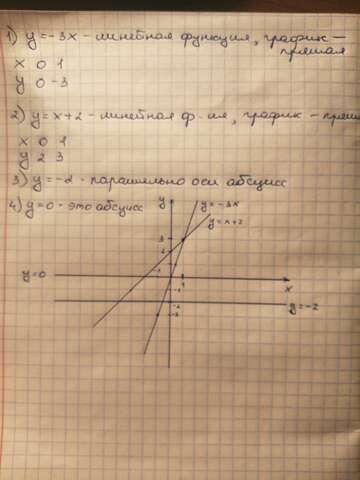 1) y = -3x - линейная функция, график -
прямая
x 0 1
y 0 -3
2) y = x+2 - линейная ф-ия, график - прям
x 0 1
y 2 3
3) y = -2 - паралельно оси абсцисс
4) y = 0 - это абсцисс
y
y = -3x
y = x+2
3
2
1
-1
1
y = 0
x
-1
-2
-3
y = -2